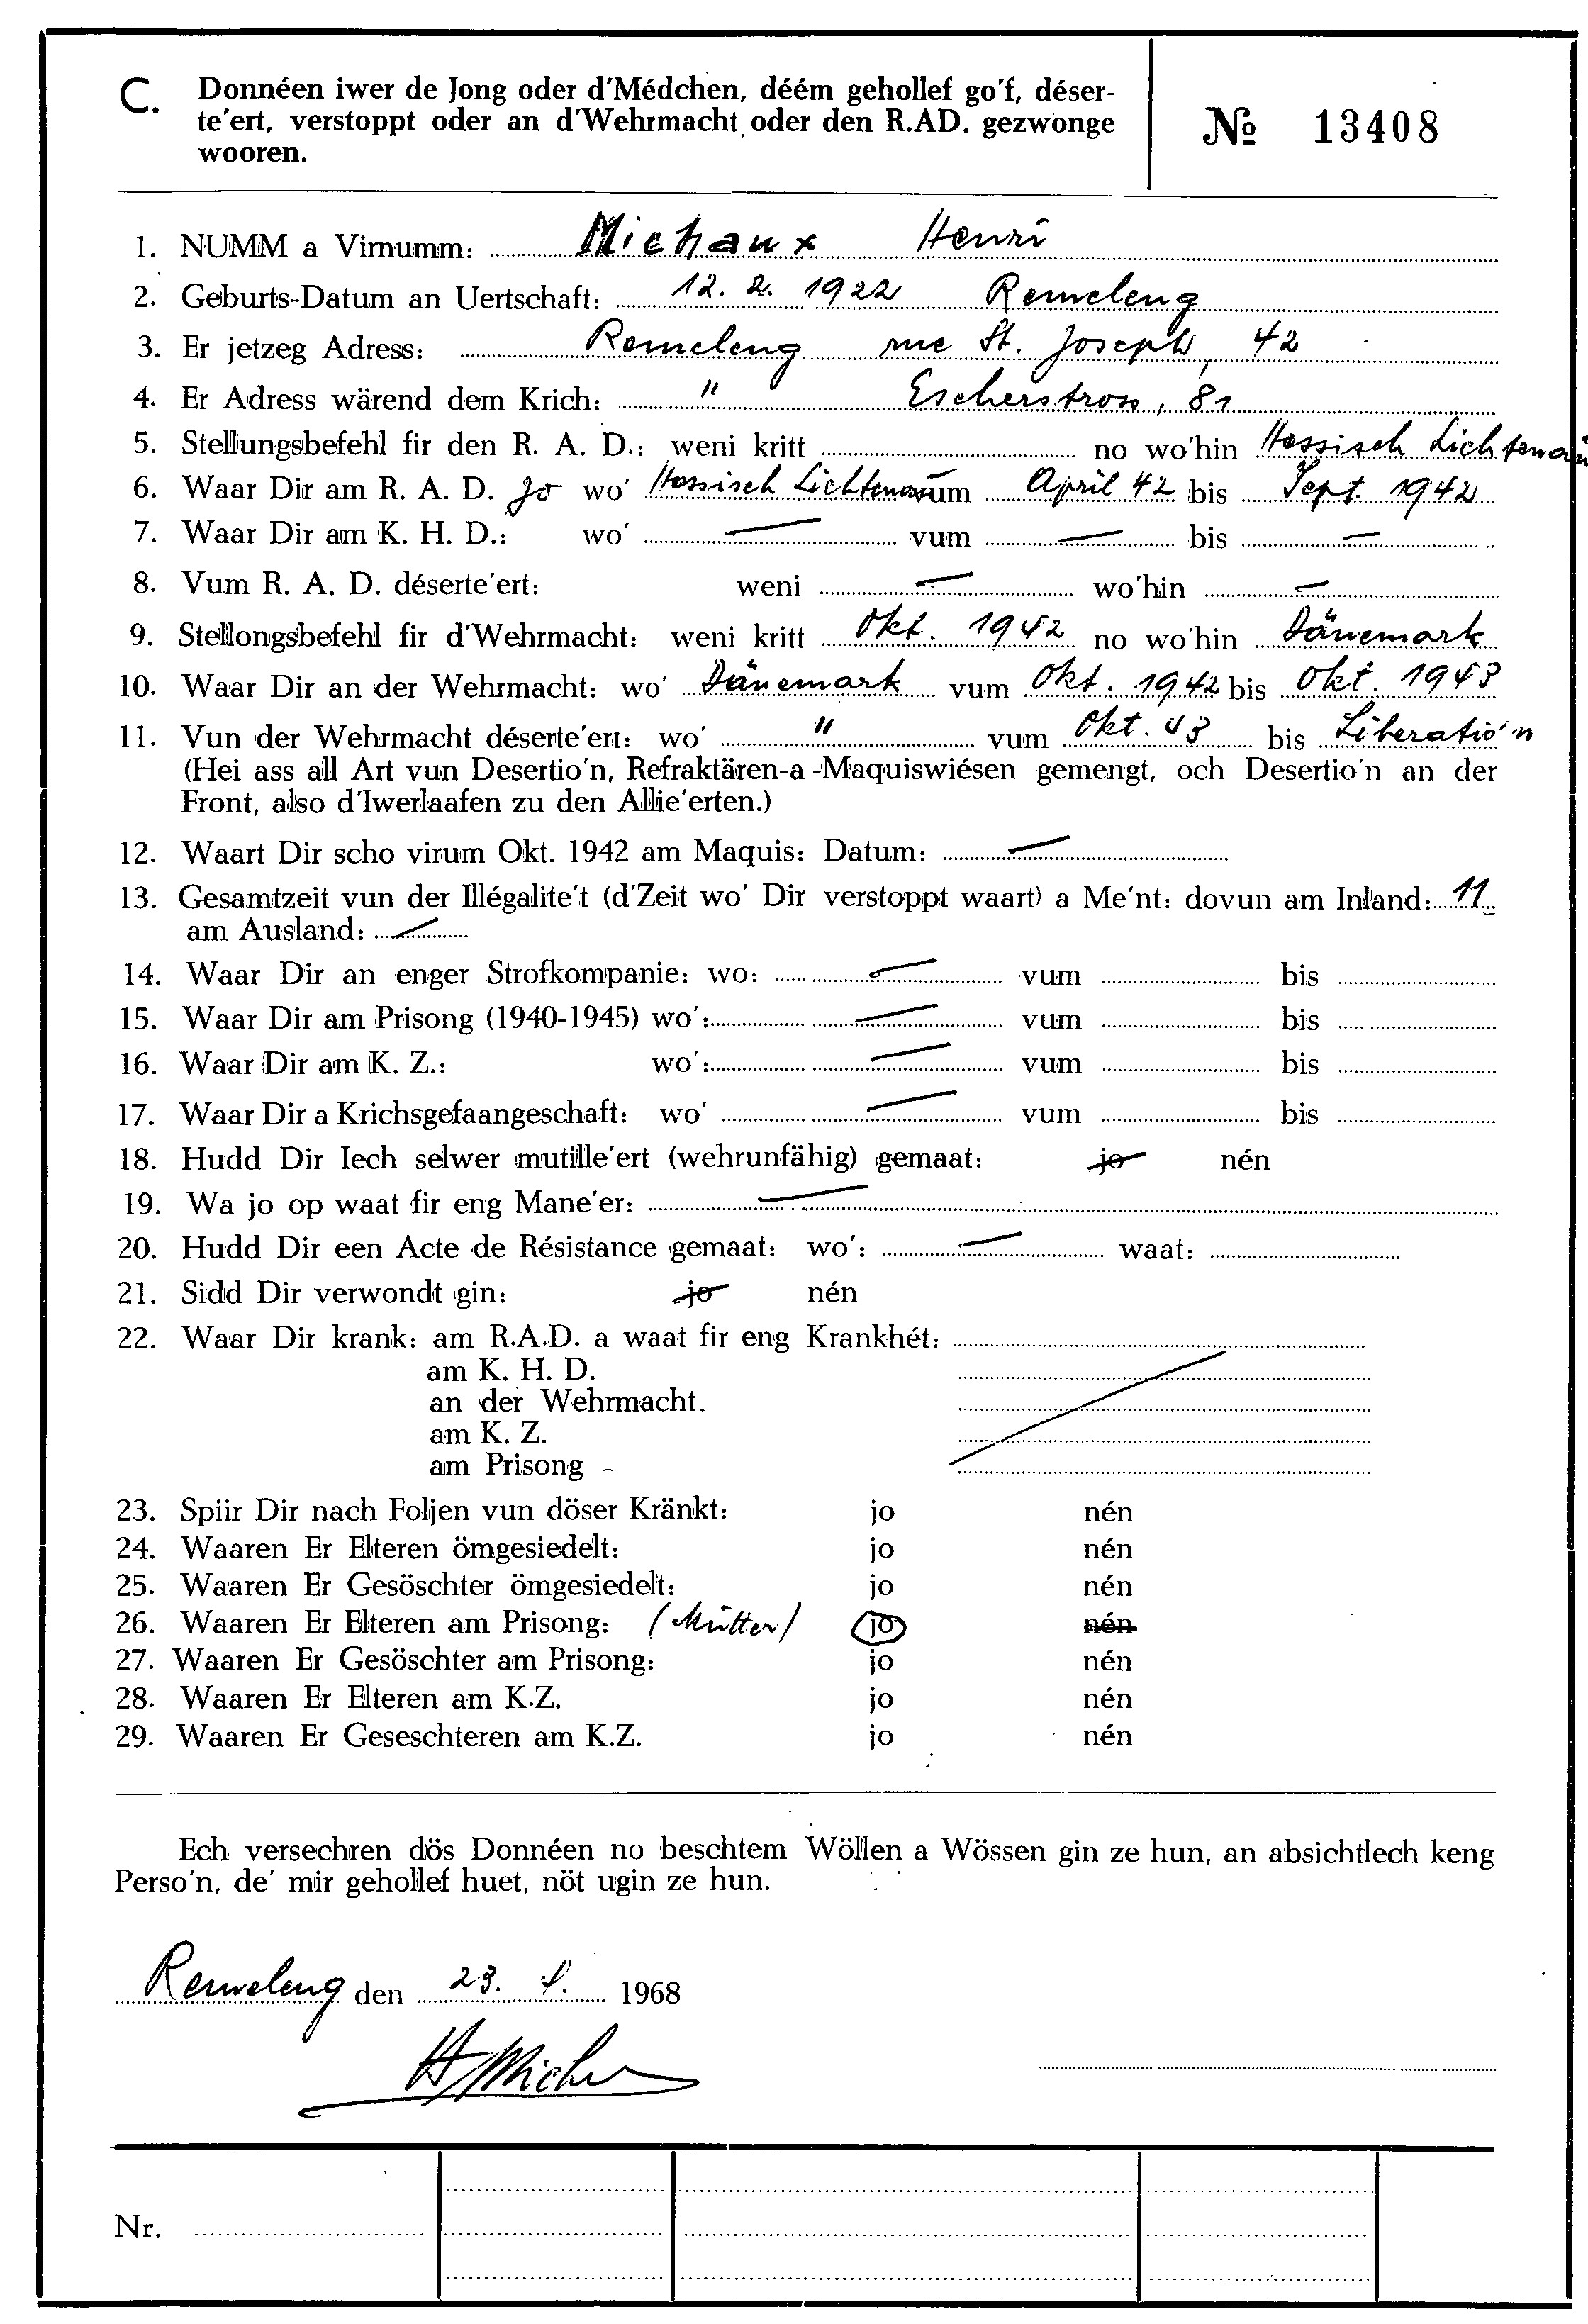 C. Donnéen iwer de Jong oder d'Médchen, déém gehollef go'f, déser-
te'ert, verstoppt oder an d'Wehrmacht oder den R.AD. gezwonge
wooren.
№ 13408
1. NUMM a Virnumm: Michaux Henri
2. Geburts-Datum an Uertschaft: 12. 2. 1922 Remeleng
3. Er jetzeg Adress: Remeleng rue St. Joseph, 42
4. Er Adress wärend dem Krich: " Escherstross, 81
5. Stellungsbefehl fir den R. A. D.: weni kritt no wo'hin Hessisch Lichtenau
6. Waar Dir am R. A. D. Jo wo' Hessisch Lichtenau vum April 42 bis Sept. 1942
7. Waar Dir am K. H. D.: wo' — vum — bis —
8. Vum R. A. D. déserte'ert: weni — wo'hin —
9. Stellongsbefehl fir d'Wehrmacht: weni kritt Okt. 1942 no wo'hin Dänemark
10. Waar Dir an der Wehrmacht: wo' Dänemark vum Okt. 1942 bis Okt. 1943
11. Vun der Wehrmacht déserte'ert: wo' " vum Okt. 43 bis Liberatio'n
(Hei ass all Art vun Desertio'n, Refraktären-a-Maquiswiésen gemengt, och Desertio'n an der
Front, also d'Iwerlaafen zu den Allie'erten.)
12. Waart Dir scho virum Okt. 1942 am Maquis: Datum: —
13. Gesamtzeit vun der Illégalite't (d'Zeit wo' Dir verstoppt waart) a Me'nt: dovun am Inland: 11
am Ausland: —
14. Waar Dir an enger Strofkompanie: wo: — vum bis
15. Waar Dir am Prisong (1940-1945) wo': — vum bis
16. Waar Dir am K. Z.: wo': — vum bis
17. Waar Dir a Krichsgefaangeschaft: wo' — vum bis
18. Hudd Dir Iech selwer mutille'ert (wehrunfähig) gemaat: jo nén
19. Wa jo op waat fir eng Mane'er: —
20. Hudd Dir een Acte de Résistance gemaat: wo': — waat:
21. Sidd Dir verwondt gin: jo nén
22. Waar Dir krank: am R.A.D. a waat fir eng Krankhét:
am K. H. D.
an der Wehrmacht.
am K. Z.
am Prisong -
23. Spiir Dir nach Foljen vun döser Kränkt: jo nén
24. Waaren Er Elteren ömgesiedelt: jo nén
25. Waaren Er Gesöschter ömgesiedelt: jo nén
26. Waaren Er Elteren am Prisong: (Mutter) jo nén
27. Waaren Er Gesöschter am Prisong: jo nén
28. Waaren Er Elteren am K.Z. jo nén
29. Waaren Er Geseschteren am K.Z. jo nén
Ech versechren dös Donnéen no beschtem Wöllen a Wössen gin ze hun, an absichtlech keng
Perso'n, de' mir gehollef huet, nöt ugin ze hun.
Remeleng den 23. 1968
H Michx
Nr.